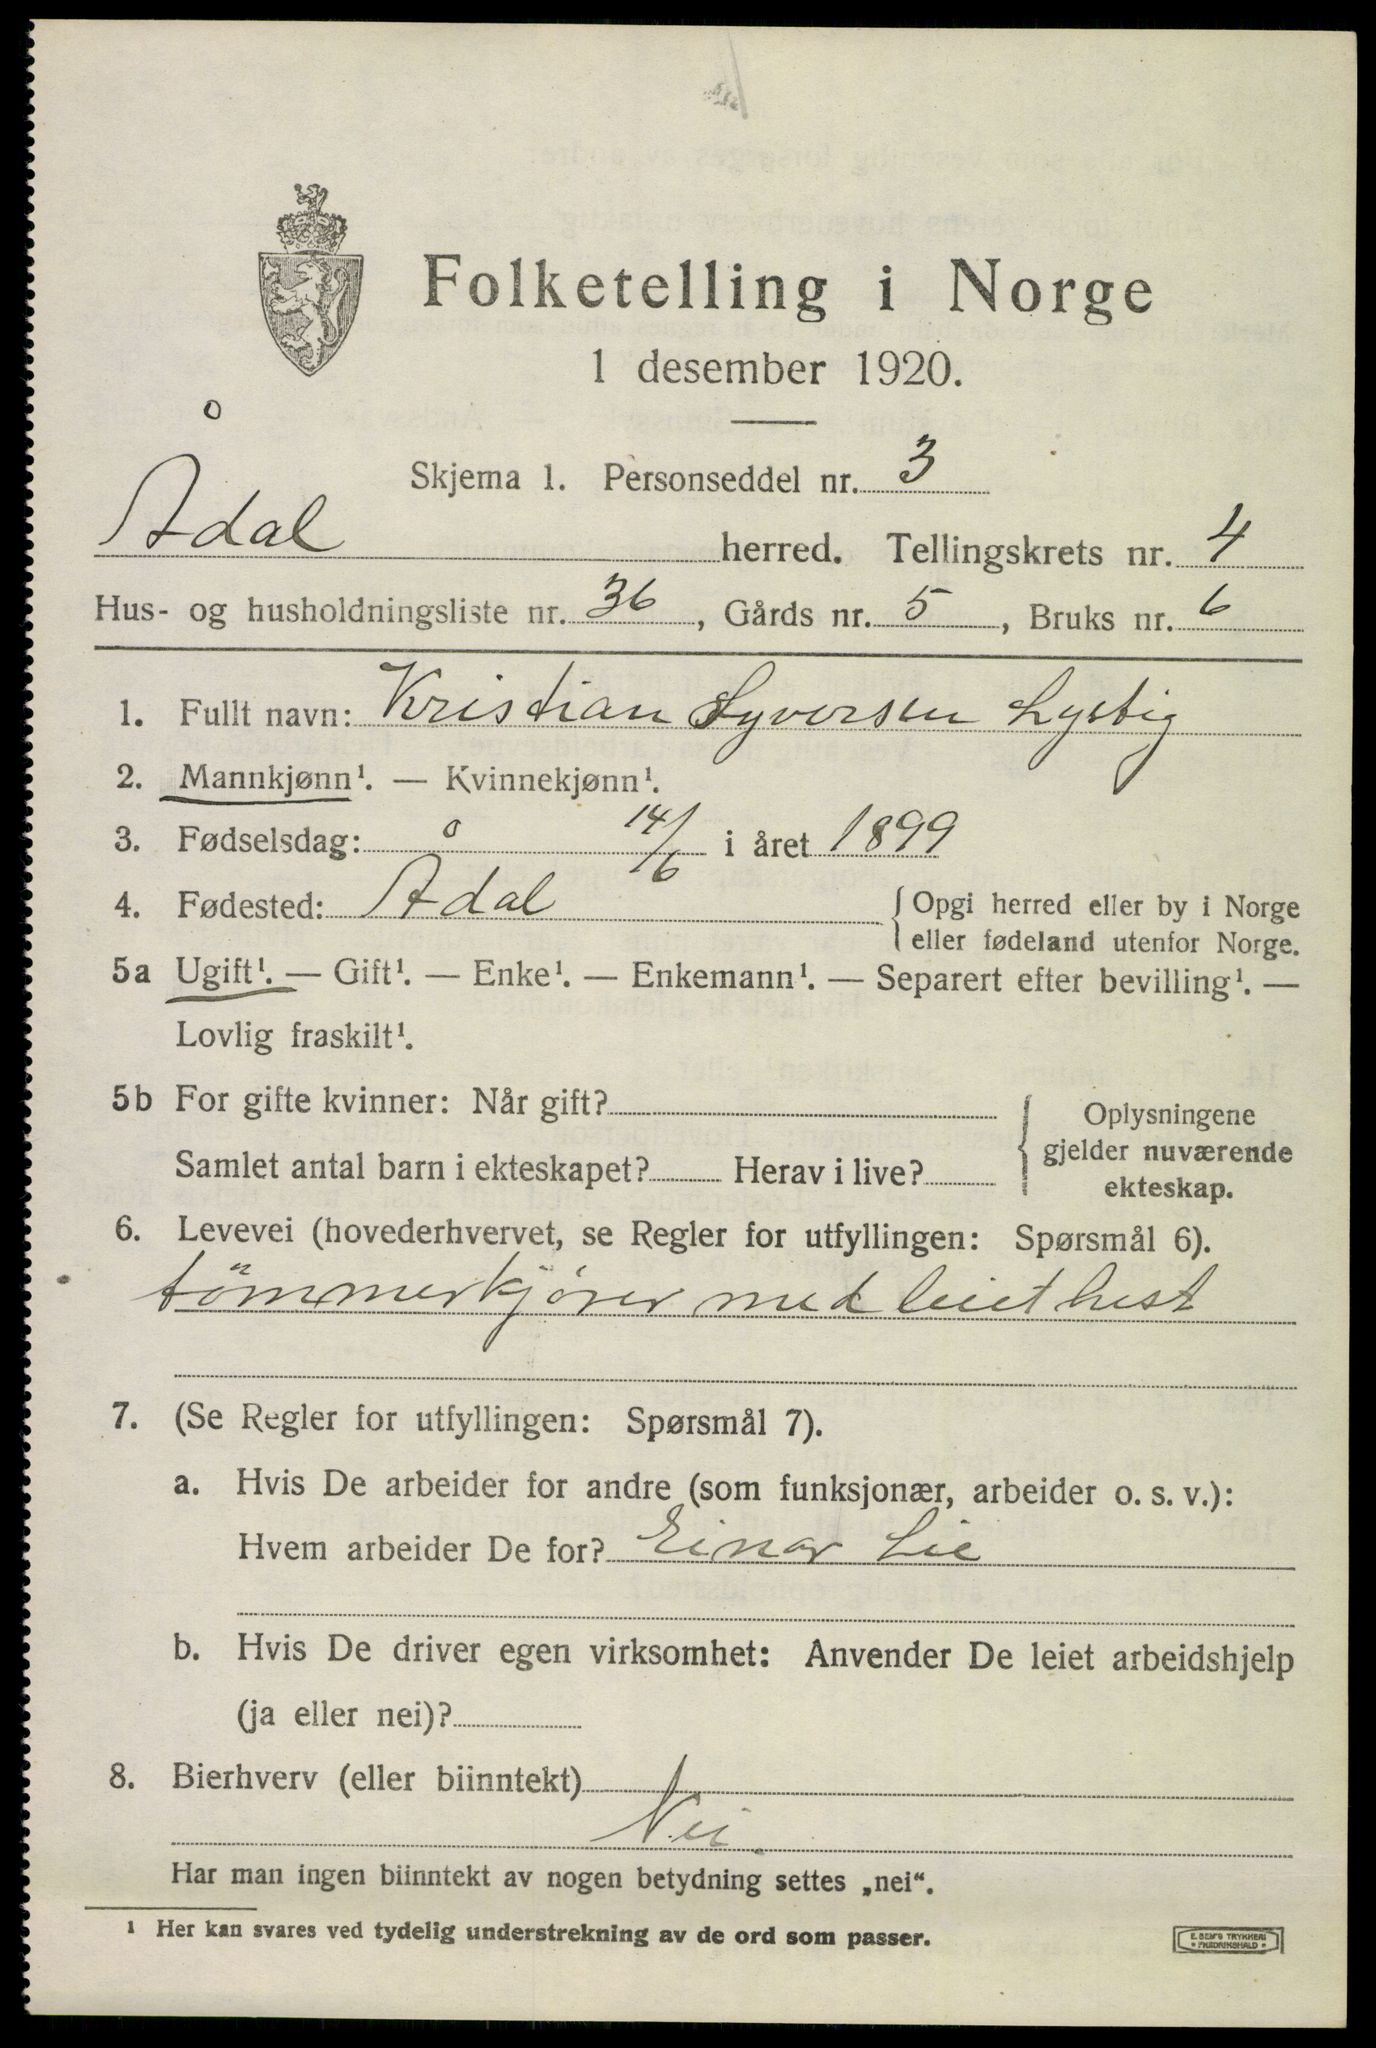 Folketelling i Norge
1 desember 1920.
Skjema 1. Personseddel nr. 3
Ådal herred. Tellingskrets nr. 4
Hus- og husholdningsliste nr. 36, Gårds nr. 5, Bruks nr. 6
1. Fullt navn: Kristian Syversen Lystig
2. Mannkjønn¹. — Kvinnekjønn¹.
3. Fødselsdag: 14/6 i året 1899
4. Fødested: Ådal {Opgi herred eller by i Norge
eller fødeland utenfor Norge.
5a Ugift¹. — Gift¹. — Enke¹. — Enkemann¹. — Separert efter bevilling¹. —
Lovlig fraskilt¹.
5b For gifte kvinner: Når gift?
Samlet antal barn i ekteskapet? Herav i live?
{Oplysningene
gjelder nuværende
ekteskap.
6. Levevei (hovederhvervet, se Regler for utfyllingen: Spørsmål 6).
tömmerkjörer med leiet hest
7. (Se Regler for utfyllingen: Spørsmål 7).
a. Hvis De arbeider for andre (som funksjonær, arbeider o. s. v.):
Hvem arbeider De for? Einar Lie
b. Hvis De driver egen virksomhet: Anvender De leiet arbeidshjelp
(ja eller nei)?
8. Bierhverv (eller biinntekt)
Nei.
Har man ingen biinntekt av nogen betydning settes „nei“.
¹ Her kan svares ved tydelig understrekning av de ord som passer.
E. SEM'S TRYKKERI
• FREDRIKSHALD •